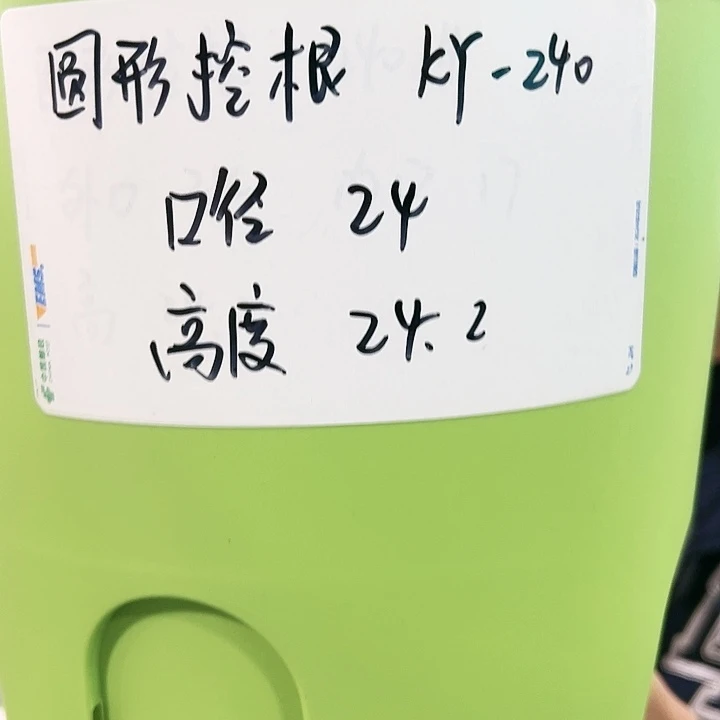 圆形控根 KY-240
口径 24
高度 24.2
EMS